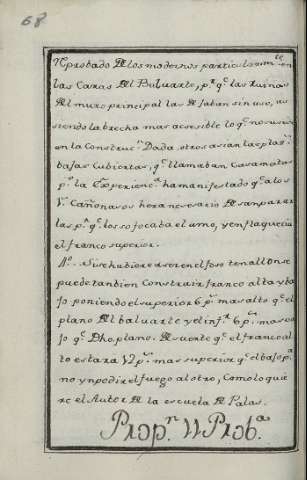 68
Reprobado De los modernos particularmte. en
las Caras Del Baluarte, pr. qe. las Ruinas
Del muro principal las Dejaban sin uso, ha
siendo la brecha mas acsesible lo qe. no
en la Construcn. Dada otros asian las
bajas Cubiertas, qe. llamaban Casamatas
pa. la Experienca. ha manifestado qe. a los
Vs. Cañonasos hera nesesario Desanparar
las pr. qe. los sofocaba el umo, y enflaquecia
el franco superior.
4o. Si se hubiere aser en el foso tenallon se
puede tanbien Construir franco alta y ba
jo poniendo el superior 6 ps. mas alto qe. el
plano Del baluarte y el infr. 6 ps. mas ba
jo qe. Dho plano. De suerte qe. el franco al
to estara 12 ps. mas superior qe. el bajo pa.
no ynpedir el fuego al otro, Como lo quie
re el Autor De la escuela De Palas.
Propn. 11 Proba.